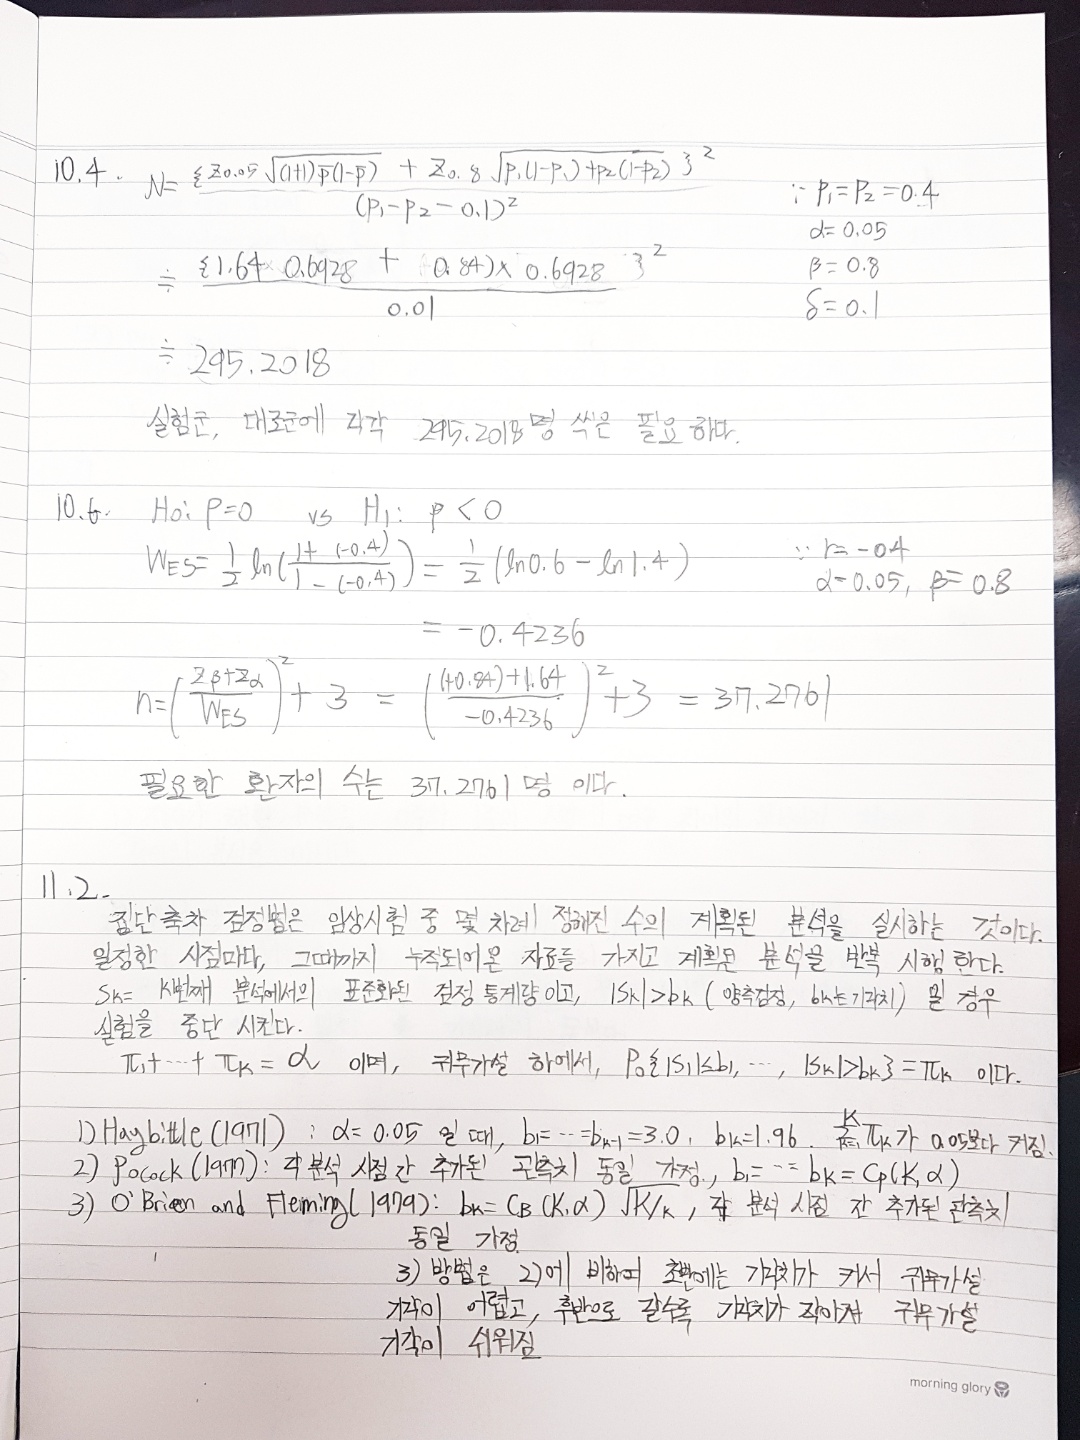 10.4. N= {Z0.05 √(1+1)p̄(1-p̄) + Z0.8 √p₁(1-p₁)+p₂(1-p₂)}²
(p₁-p₂-0.1)²
∵ p₁=p₂=0.4
α=0.05
β=0.8
δ=0.1
≒ {1.64× 0.6928 + 0.84)× 0.6928 }²
0.01
≒ 295.2018
실험군, 대조군에 각각 295.2018명 씩은 필요하다.
10.6. H₀: ρ=0 vs H₁: ρ<0
W_ES= 1/2 ln(1+(-0.4) / 1-(-0.4)) = 1/2 (ln0.6-ln1.4)
∵ r=-0.4
α=0.05, β=0.8
= -0.4236
n=(Zβ+Zα / W_ES)² + 3 = ((+0.84)+1.64 / -0.4236)² +3 = 37.2761
필요한 환자의 수는 37.2761명 이다.
11.2.
집단축차 검정법은 임상시험 중 몇 차례 정해진 수의 계획된 분석을 실시하는 것이다.
일정한 시점마다, 그때까지 누적되어온 자료들 가지고 계획된 분석을 반복 시행한다.
Sk= K번째 분석에서의 표준화된 검정 통계량이고, |Sk|>bk (양측검정, bk는 기각치) 일 경우
실험을 중단 시킨다.
π₁+…+πK=α 이며, 귀무가설 하에서, P₀{|S₁|≤b₁, …, |Sk|>bk}=πk 이다.
1) Haybittle(1971) : α=0.05 일 때, b₁=…=bk-1=3.0, bk=1.96. Σ(k=1→K) πk가 0.05보다 커짐.
2) Pocock(1977): 각 분석 시점 간 추가된 관측치 동일 가정, b₁=…bk=Cp(K,α)
3) O'Brien and Fleming(1979): bk=CB(K,α)√K/k, 각 분석 시점 간 추가된 관측치
동일 가정
3) 방법은 2)에 비하여 초반에는 기각치가 커서 귀무가설
기각이 어렵고, 후반으로 갈수록 기각치가 작아져 귀무가설
기각이 쉬워짐
morning glory